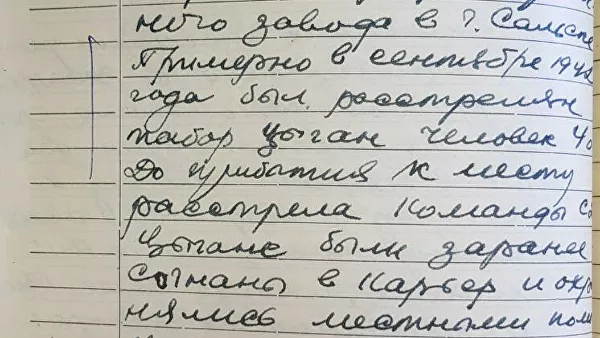 ного завода в г. Сальске
Примерно в сентябре 1942
года был расстрелян
табор цыган человек 40
До прибытия к месту
расстрела команды С
Цыгане были заране
согнаны в карьер и охр
нялись местными пол